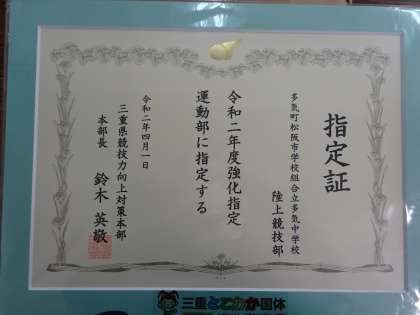 指定証
多気町松阪市学校組合立多気中学校
陸上競技部
令和二年度強化指定
運動部に指定する
令和二年四月一日
三重県競技力向上対策本部
本部長 鈴木英敬
三重とこわか国体